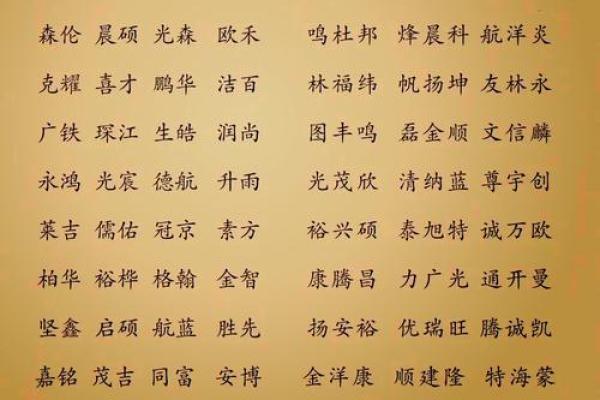 森伦 晨硕 光森 欧禾 鸣杜邦 烽晨科 航洋炎
克耀 喜才 鹏华 洁百 林福纬 帆扬坤 友林永
广铁 琛江 生皓 润尚 图丰鸣 磊金顺 文信麟
永鸿 光宸 德航 升雨 光茂欣 清纳蓝 尊宇创
莱吉 儒佑 冠京 素方 裕兴硕 泰旭特 诚万欧
柏华 裕桦 格翰 金智 康腾昌 力广光 通开曼
坚鑫 启硕 航蓝 胜先 扬安裕 优瑞旺 腾诚凯
嘉铭 茂吉 同富 安博 金洋康 顺建隆 特海蒙